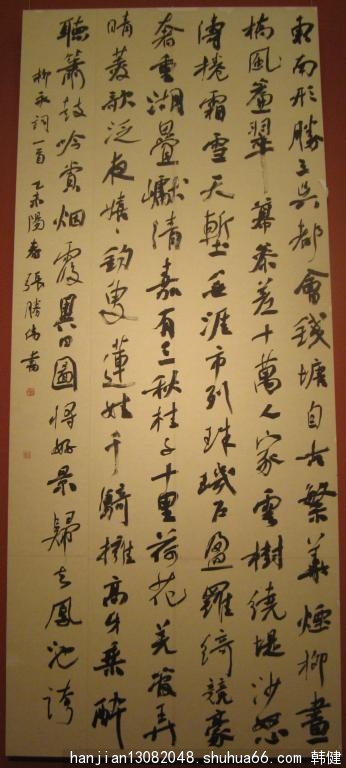 東南形勝三吳都會錢塘自古繁華煙柳畫
橋風簾翠幕參差十萬人家雲樹繞堤沙怒
濤捲霜雪天塹無涯市列珠璣戶盈羅綺競豪
奢重湖疊巘清嘉有三秋桂子十里荷花羌管弄
晴菱歌泛夜嬉々釣叟蓮娃千騎擁高牙乘醉
聽簫鼓吟賞烟霞異日圖將好景歸去鳳池誇
柳永詞一首 乙未陽春張勝偉書
hanjian13082048.shuhua66.com 韩健